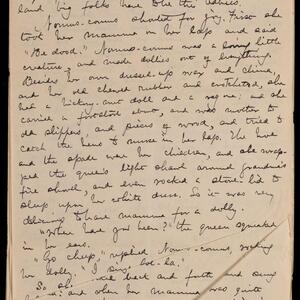 and big folks have the babies.
Nomus-comus shouted for joy. First she
took her mamma on her lap and said
"Be dood." Nomus-comus was a loving little
creature, and made dollies out of everything.
Besides her own dressed-up wax and china,
and her old chewed rubber and crocheted, she
had a hickory-nut doll and a rag one; and she
carried a footstool about, and was mother to
old slippers, and pieces of wood, and tried to
catch the hens to nurse in her lap. The hoe
and the spade were her children, and she wrap-
ped the queen's light shawl around grandma's
fire shovel, and even rocked a stove-lid to
sleep upon her white dress. So it was very
delicious to have mamma for a dolly.
"Where had you been?" the queen squeaked
in her ears.
"Go sleep," replied Nomus-comus, rocking
her dolly. "I sing loo-la."
So back and forth and sung
and when her mamma was quite